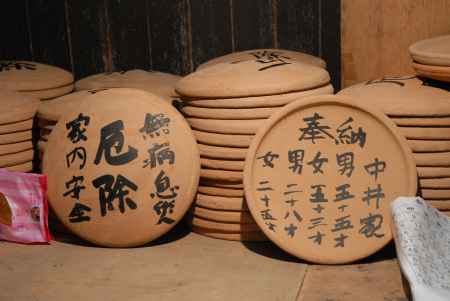 無病息災
厄除
家内安全
奉納
中井家
男五十五才
女五十三才
男二十八才
女二十五才